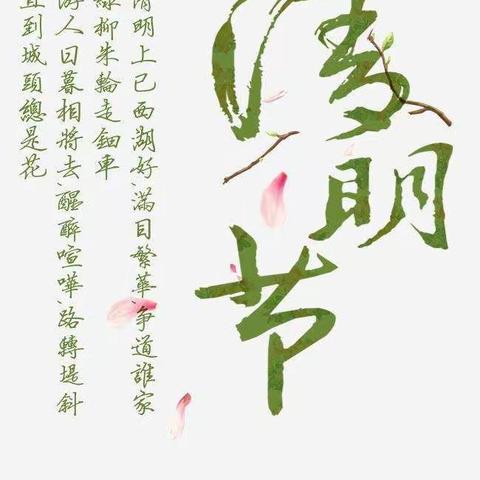 清明节
清明上巳西湖好、滿目繁華、爭道誰家
綠柳朱輪走鈿車
游人日暮相將去、醒醉喧嘩、路轉堤斜
直到城頭總是花